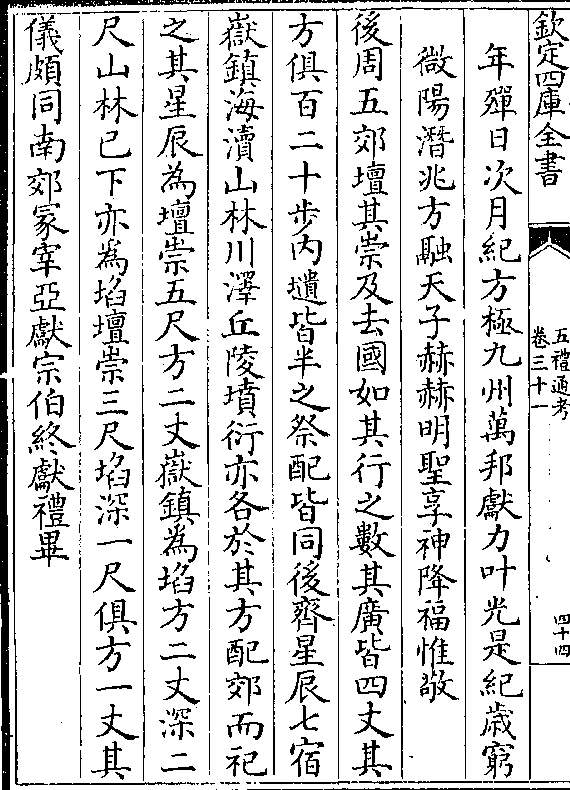 欽定四庫全書
五禮通考
卷三十一
四十四
年殫日次月紀方極九州萬邦獻力叶光是紀歳窮
微陽潛兆方融天子赫赫明聖享神降福惟敬
後周五郊壇其崇及去國如其行之數其廣皆四丈其
方俱百二十歩内壝皆半之祭配皆同後齊星辰七宿
嶽鎮海瀆山林川澤丘陵墳衍亦各於其方配郊而祀
之其星辰為壇崇五尺方二丈嶽鎮為埳方二丈深二
尺山林已下亦為埳壇崇三尺埳深一尺俱方一丈其
儀頗同南郊冢宰亞獻宗伯終獻禮畢